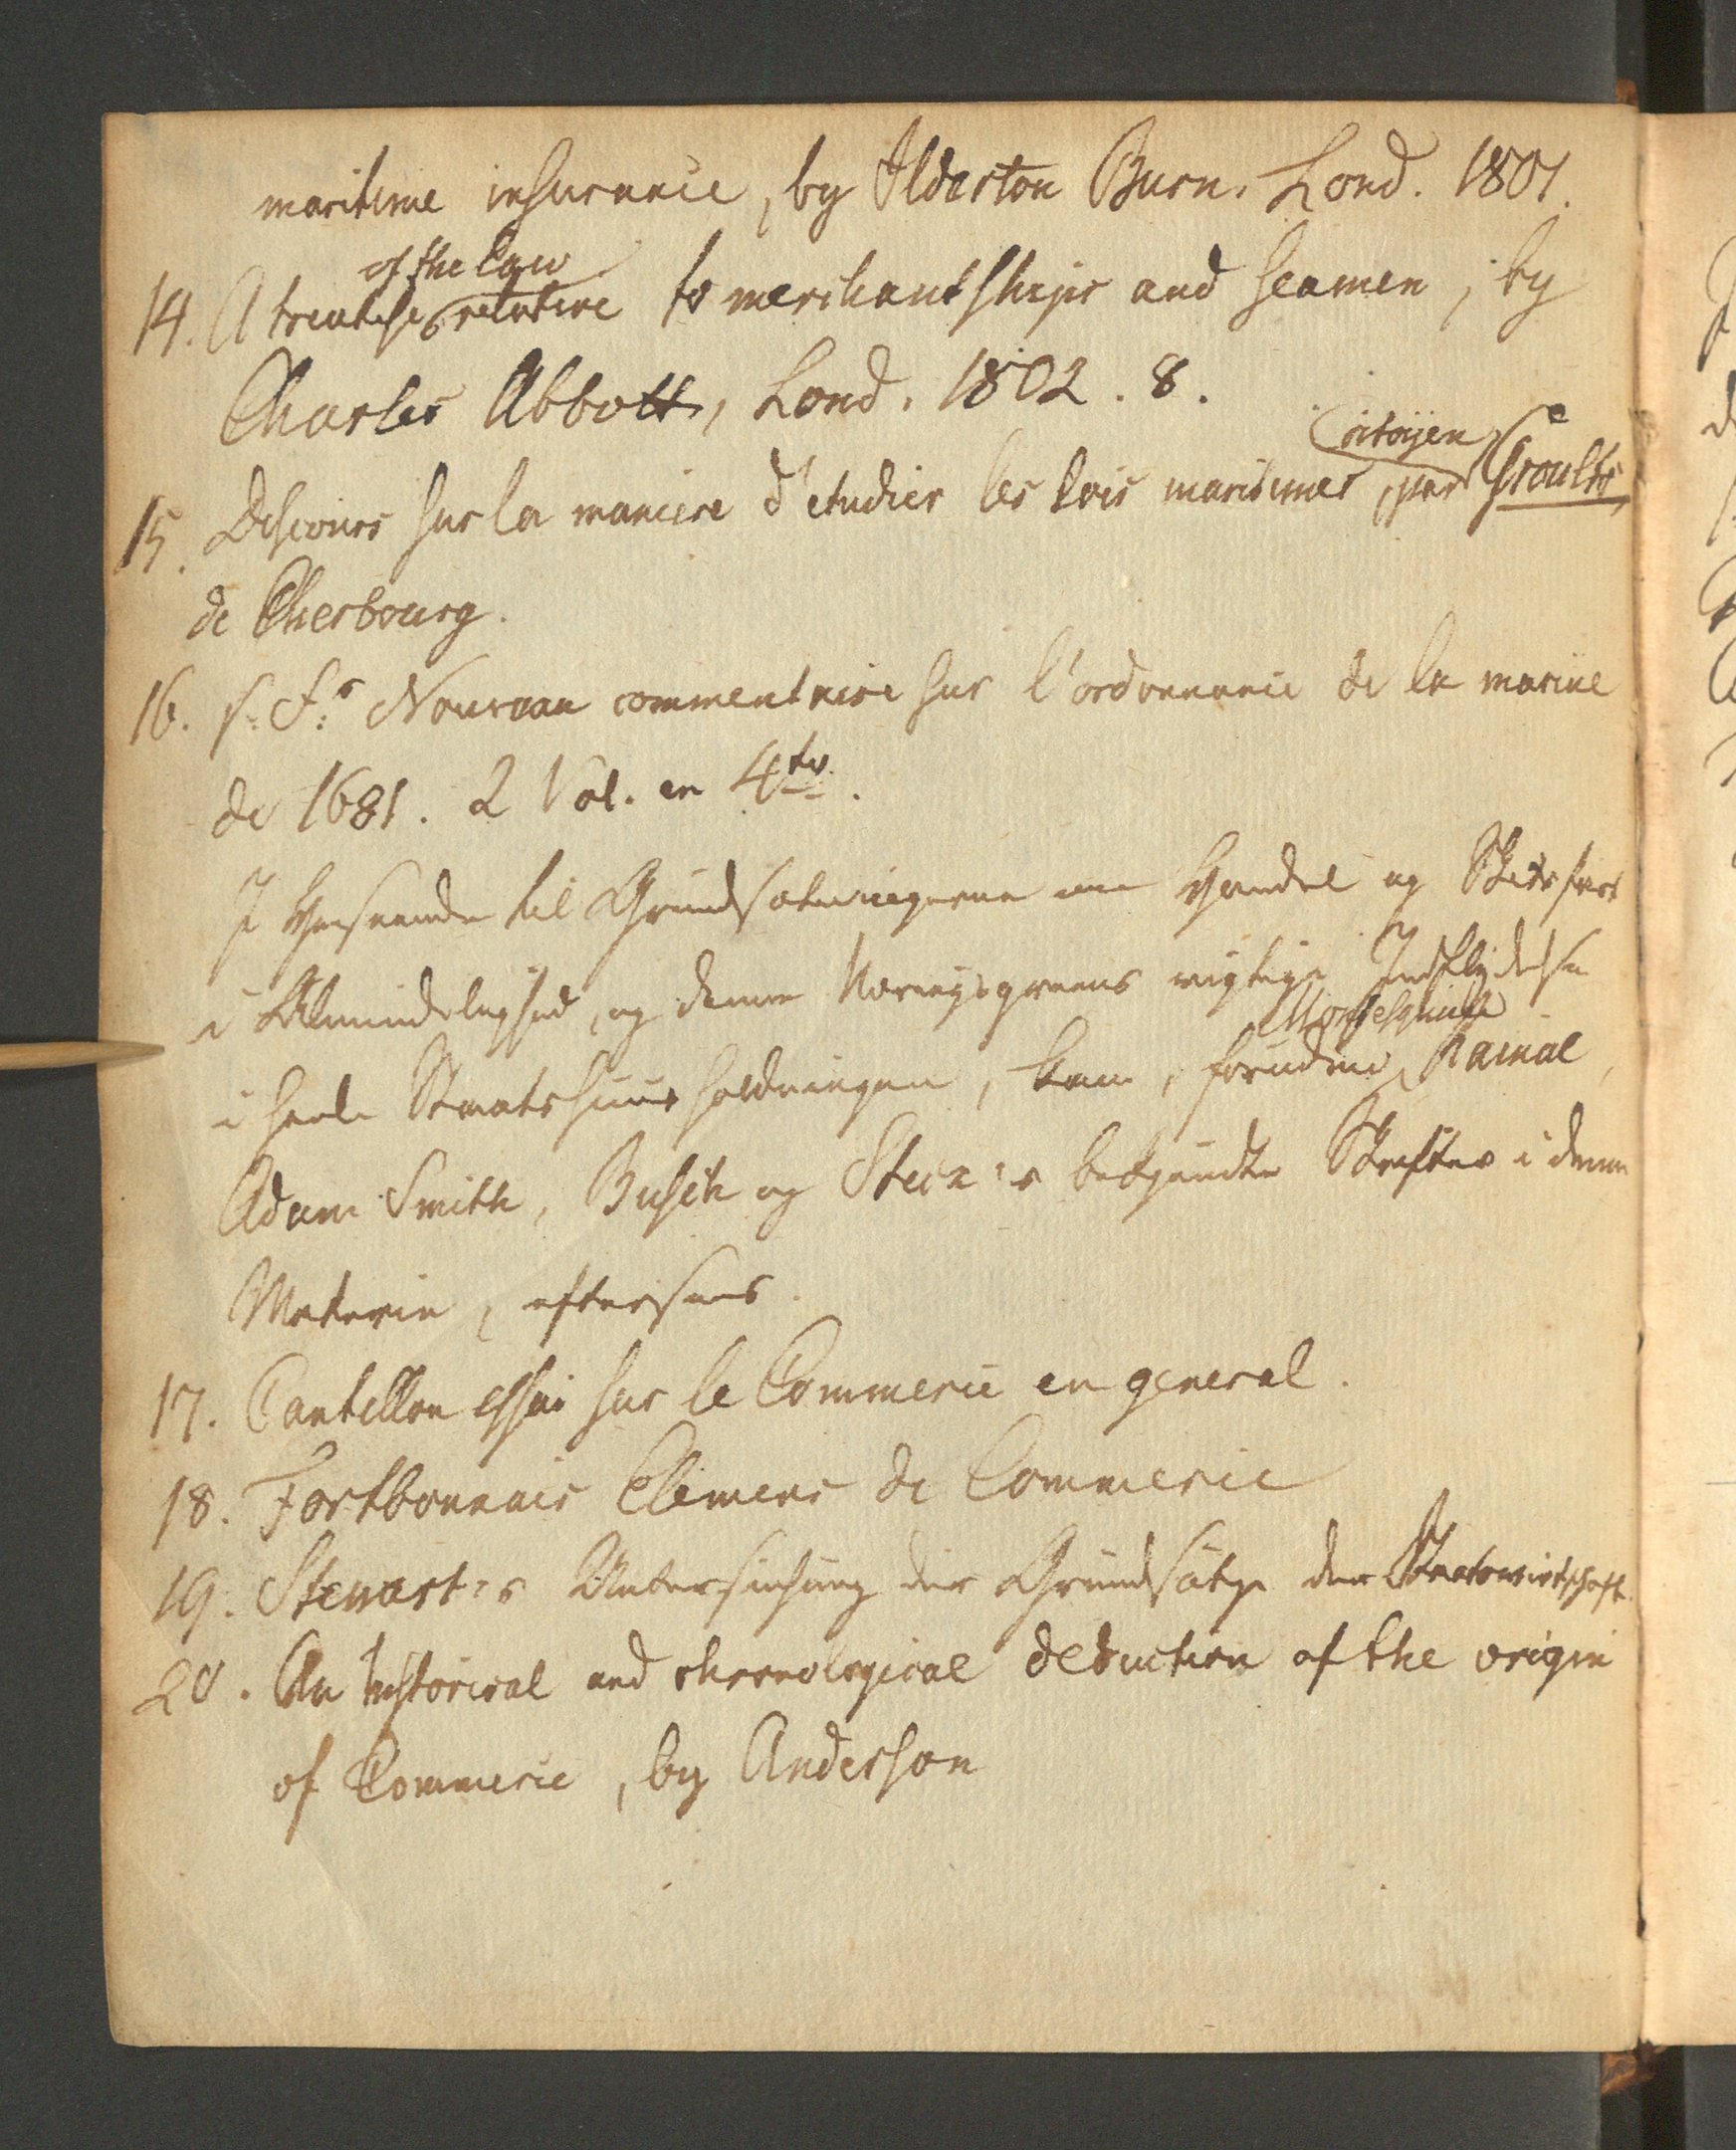 maritime insurance, by Ilderton Burn. Lond. 1801.
of the law
14. A treatise relative to merchant ships and seamen, by
Charles Abbott, Lond. 1802. 8.
Citoijen
15. Discours sur la maniere d'etudier les lois maritimes, par Groult
de Cherbourg.
16. commentaire sur l'ordonnance de la marine
de 1681. 2 Vol. en 4to.
I Henseende til Grundsætningerne om Handel og Skibsfart
i Almindelighed, og denne Næringsgreens vigtige Indflydelse
Montesquieu
i heele Staatshuusholdningen, kan, foruden Rainal,
Adam Smith, Busch og Steck's bekjendte Skrifter i denne
Materie, eftersees.
17. Cantillon essai sur le Commerce en general.
18. Fortbonnais Elemens de Commerce
19. Stewart's Untersuchung der Grundsätze der Staatswirtschaft.
20. An historical and chronological deduction of the origin
of Commerce, by Anderson